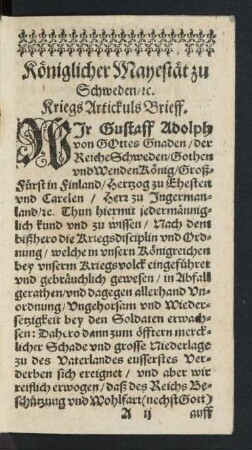 Königlicher Mayestät zu
Schweden/ꝛc.
Kriegs Artickuls Brieff.
WIr Gustaff Adolph
von GOttes Gnaden / der
Reiche Schweden / Gothen
vnd Wenden König / Groß-
Fürst in Finland / Hertzog zu Ehesten
vnd Carelen / Herz zu Ingerman-
land/ꝛc. Thun hiermit jedermännig-
lich kund vnd zu wissen / Nach dem
bißhero die Kriegsdisciplin vnd Ord-
nung / welche in vnsern Königreichen
bey vnserm Kriegsvolck eingeführet
vnd gebräuchlich gewesen / in Abfall
gerathen / vnd dagegen allerhand Vn-
ordnung / Vngehorsam vnd Wieder-
setzigkeit bey den Soldaten erwach-
sen: Dahero dann zum öfftern merck-
licher Schade vnd grosse Niederlage
zu des Vaterlandes eusserstes Ver-
derben sich ereignet / vnd aber wir
reifflich erwogen / daß des Reichs Be-
schützung vnd Wohlfart (nechst Gott)
A ij auff